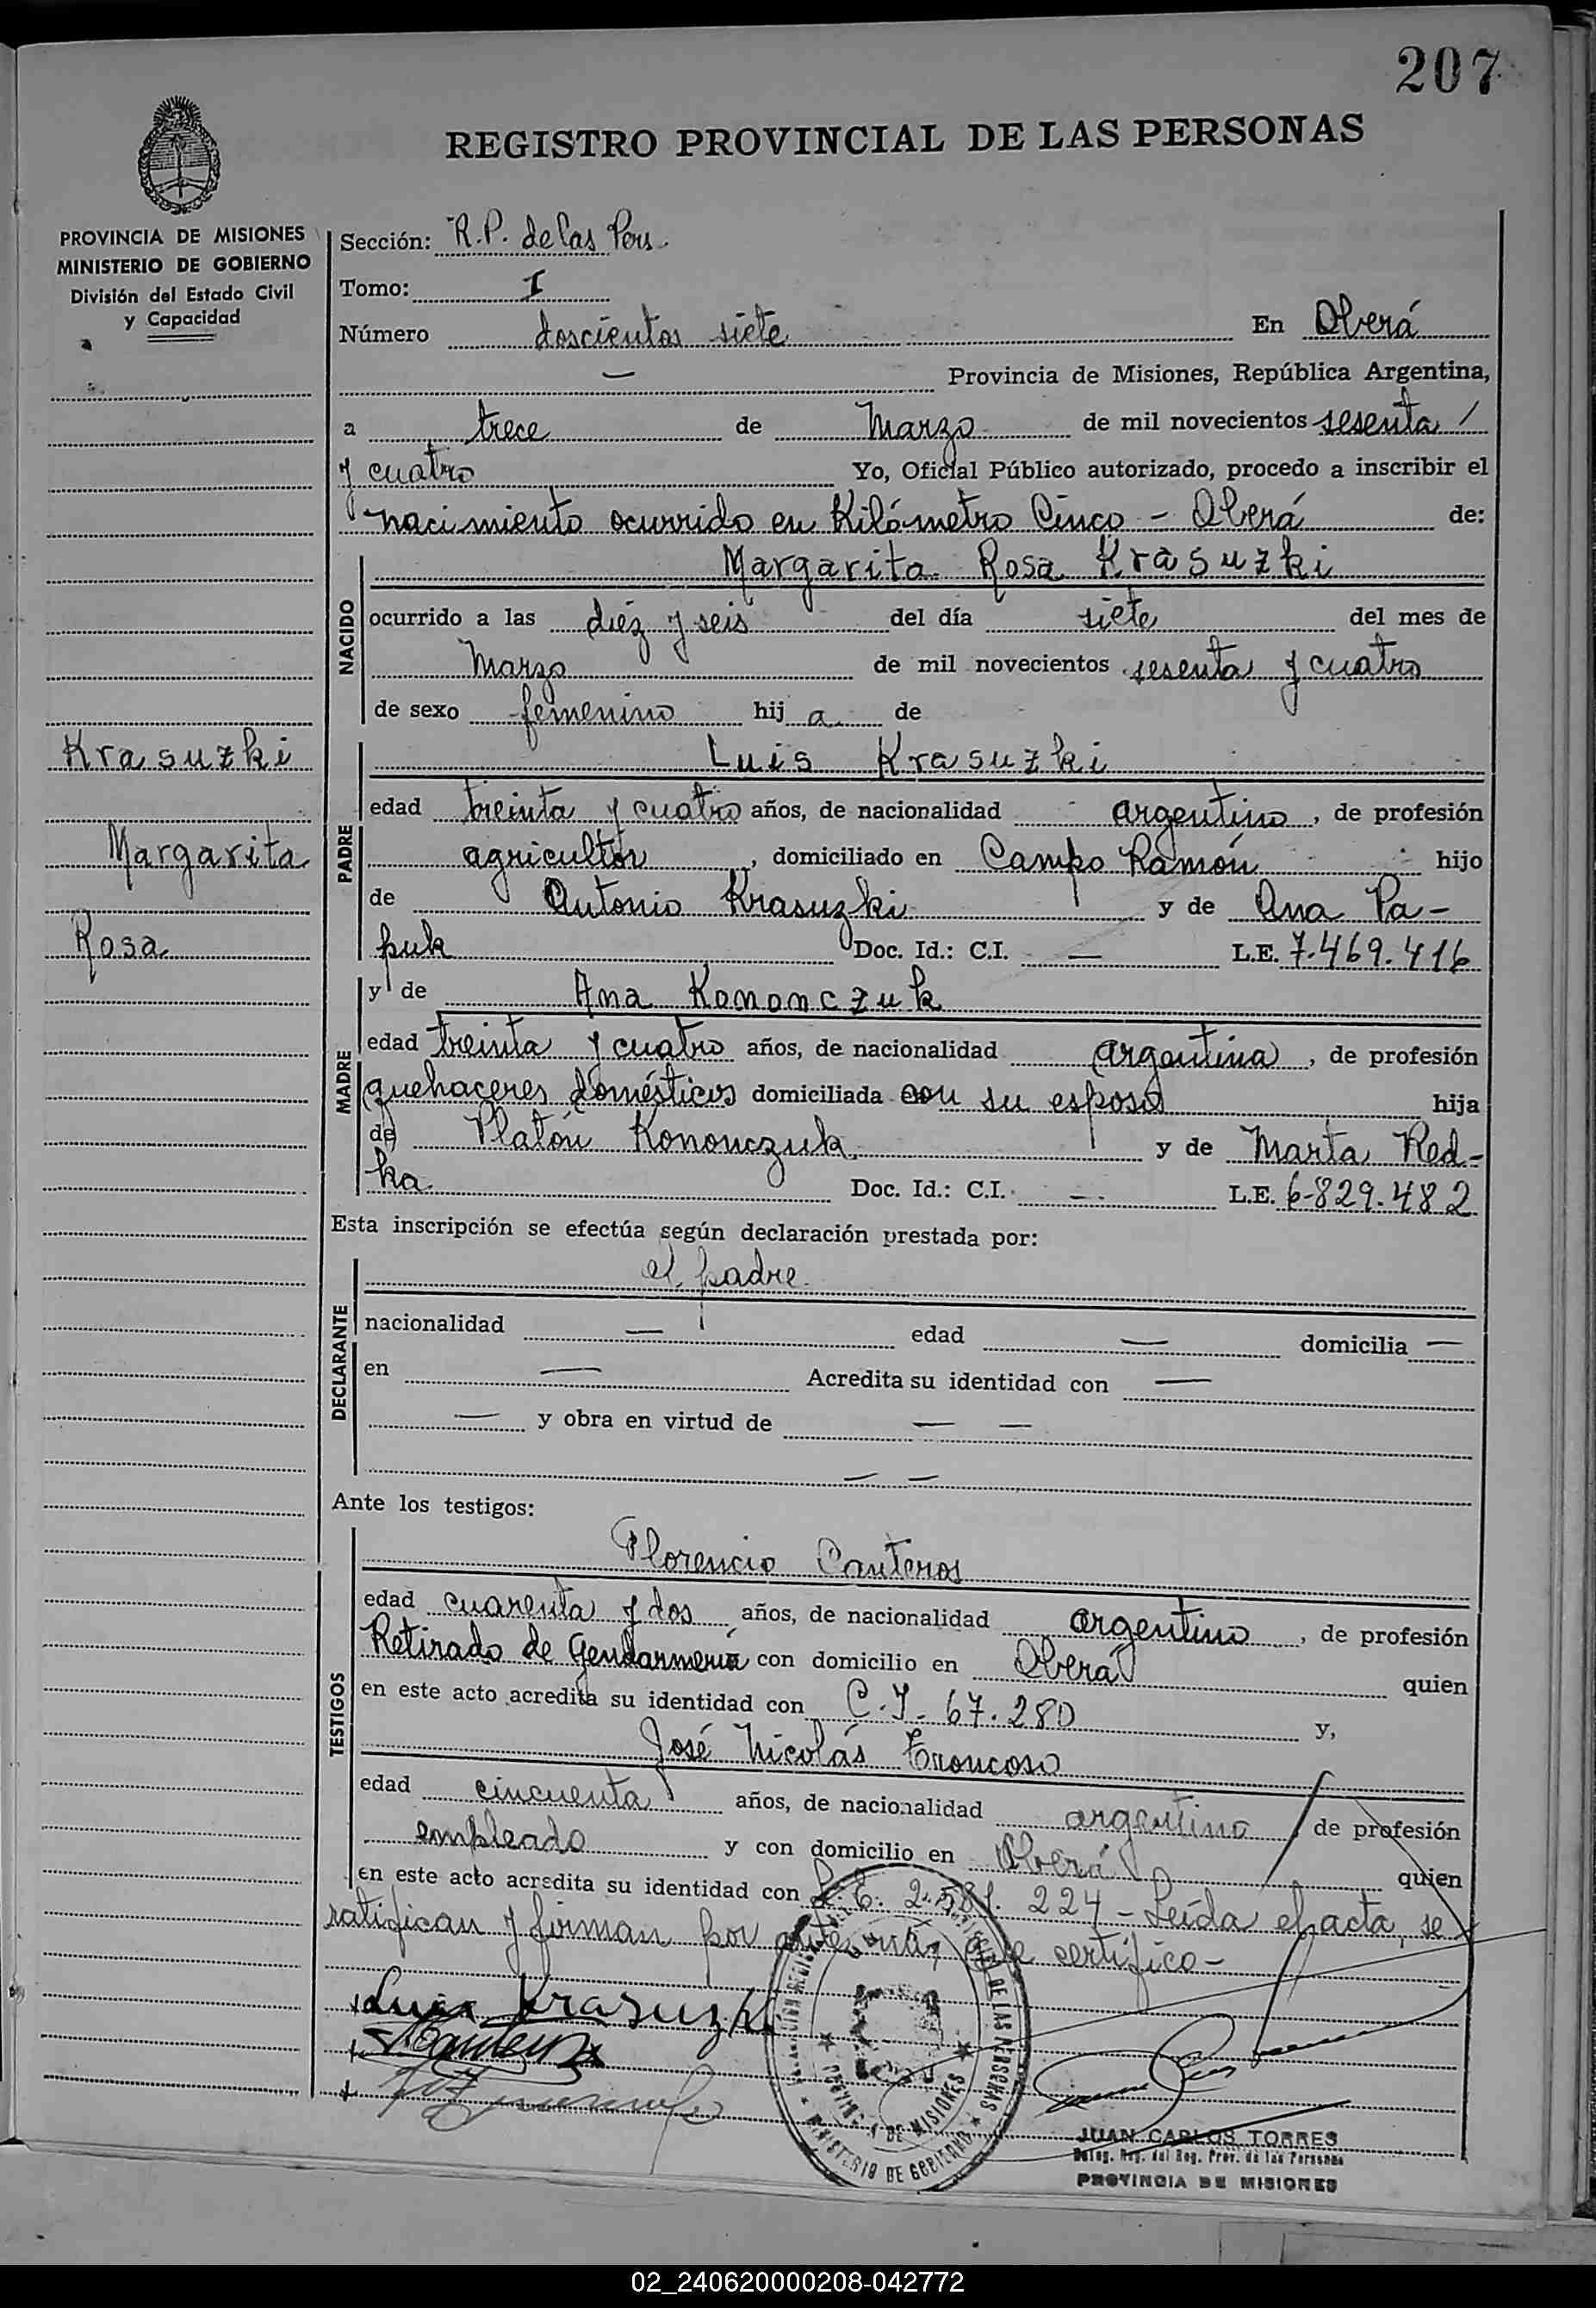 207
REGISTRO PROVINCIAL DE LAS PERSONAS
PROVINCIA DE MISIONES
MINISTERIO DE GOBIERNO
División del Estado Civil
y Capacidad
Sección: R.P. de las Pers.
Tomo: I
Número doscientos siete En Oberá
— Provincia de Misiones, República Argentina,
a trece de Marzo de mil novecientos sesenta /
y cuatro Yo, Oficial Público autorizado, procedo a inscribir el
nacimiento ocurrido en Kilómetro Cinco - Oberá de:
NACIDO
Margarita Rosa Krasuzki
ocurrido a las diéz y seis del día siete del mes de
Marzo de mil novecientos sesenta y cuatro
de sexo femenino hij a de
Krasuzki
Margarita
Rosa
PADRE
Luis Krasuzki
edad treinta y cuatro años, de nacionalidad argentino, de profesión
agricultor, domiciliado en Campo Ramón hijo
de Antonio Krasuzki y de Ana Pa-
puk Doc. Id.: C.I. — L.E. 7.469.416
MADRE
y de Ana Kononczuk
edad treinta y cuatro años, de nacionalidad argentina, de profesión
quehaceres domésticos domiciliada con su esposo hija
de Platón Kononczuk y de Marta Red-
ka Doc. Id.: C.I. — L.E. 6-829.482
Esta inscripción se efectúa según declaración prestada por:
DECLARANTE
el padre
nacionalidad — edad — domicilia —
en — Acredita su identidad con —
— y obra en virtud de — —
— —
Ante los testigos:
TESTIGOS
Florencio Canteros
edad cuarenta y dos años, de nacionalidad argentino, de profesión
Retirado de Gendarmería con domicilio en Oberá quien
en este acto acredita su identidad con C.I. 67.280 y,
José Nicolás Troncoso
edad cincuenta años, de nacionalidad argentino, de profesión
empleado y con domicilio en Oberá quien
en este acto acredita su identidad con L.E. 2.581.224 - Leída el acta, se
ratifican y firman por ante mí, que certifico -
Luis Krasuzki
DE LAS PERSONAS
DE MISIONES
MINISTERIO DE GOBIERNO
JUAN CARLOS TORRES
Deleg. Reg. del Reg. Prov. de las Personas
PROVINCIA DE MISIONES
02_240620000208-042772